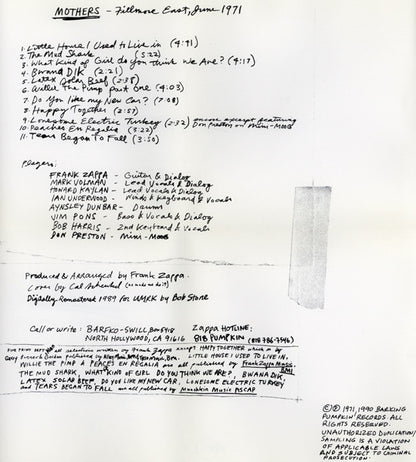 MOTHERS - Fillmore East, June 1971
1. Little House I Used to Live in (4:41)
2. The Mud Shark (5:22)
3. What Kind of Girl do you Think We Are? (4:17)
4. Bwana Dik (2:21)
5. Latex Solar Beef (2:38)
6. Willie The Pimp Part One (4:03)
7. Do You like my New Car? (7:08)
8. Happy Together (2:57)
9. Lonesome Electric Turkey (2:32) encore excerpt featuring
Don Preston on Mini-Moog
10. Peaches En Regalia (3:22)
11. Tears Began To Fall (3:50)
Players:
FRANK ZAPPA - Guitar & Dialog
MARK VOLMAN - Lead Vocals & Dialog
HOWARD KAYLAN - Lead Vocals & Dialog
IAN UNDERWOOD - Winds & Keyboard & Vocals
AYNSLEY DUNBAR - Drums
JIM PONS - Bass & Vocals & Dialog
BOB HARRIS - 2nd Keyboard & Vocals
DON PRESTON - Mini-Moog
Produced & Arranged by Frank Zappa.
Cover by Cal Schenkel
Digitally Remastered 1989 for UMRK by Bob Stone
Call or write: BARFKO-SWILL, Box 5418
NORTH HOLLYWOOD, CA 91616
Zappa HOTLINE:
818 PUMPKIN (818 786-7546)
FINE PRINT DEPT: all selections written by Frank Zappa except HAPPY TOGETHER which is by
Garry Bonner & Gordon published by BMI. LITTLE HOUSE I USED TO LIVE IN,
WILLIE THE PIMP & PEACHES EN REGALIA are all published by Frank Zappa Music, BMI
THE MUD SHARK, WHAT KIND OF GIRL DO YOU THINK WE ARE?, BWANA DIK,
LATEX SOLAR BEEF, DO YOU LIKE MY NEW CAR, LONESOME ELECTRIC TURKEY
and TEARS BEGAN TO FALL are all published by Munchkin Music ASCAP
©℗ 1971, 1990 BARKING
PUMPKIN RECORDS. ALL
RIGHTS RESERVED.
UNAUTHORIZED DUPLICATION/
SAMPLING IS A VIOLATION
OF APPLICABLE LAWS
AND SUBJECT TO CRIMINAL
PROSECUTION.